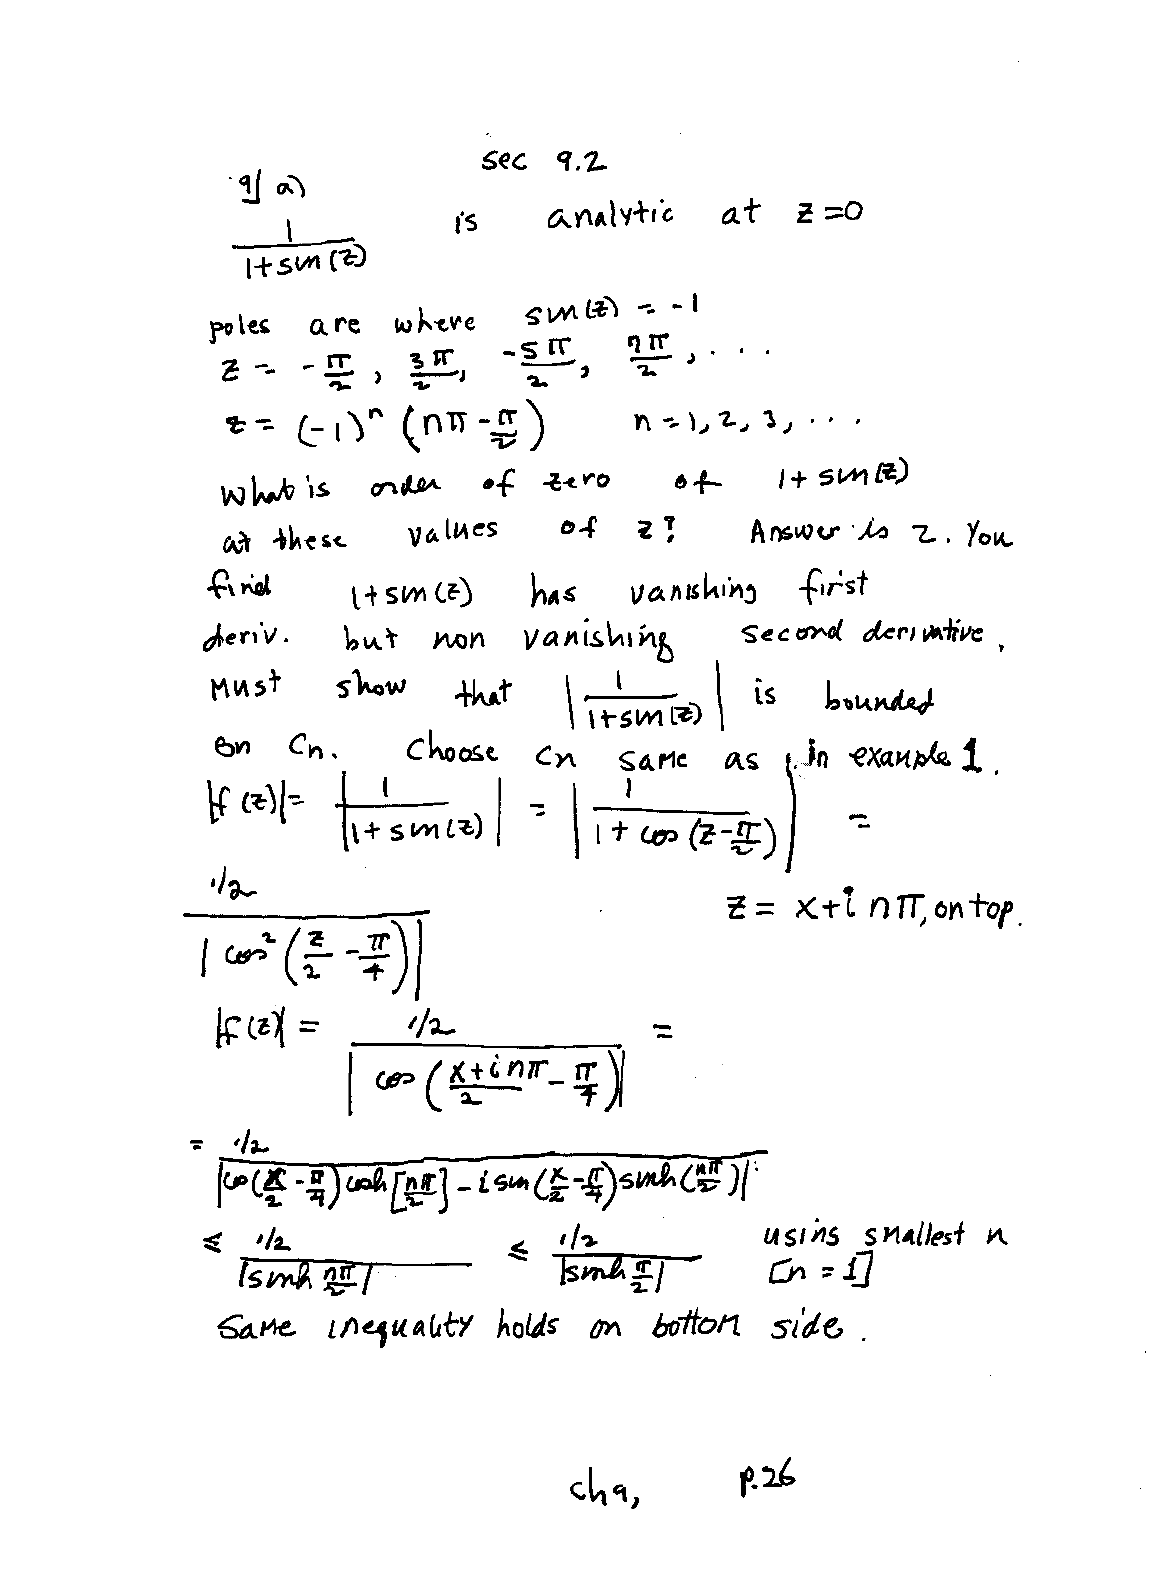 sec 9.2
9] a)
1/(1+sin(z)) is analytic at z=0
poles are where sin(z) = -1
z = -π/2, 3π/2, -5π/2, 7π/2, ...
z = (-1)^n (nπ - π/2) n=1,2,3,...
What is order of zero of 1+sin(z)
at these values of z? Answer is 2. You
find 1+sin(z) has vanishing first
deriv. but non vanishing second derivative.
Must show that |1/(1+sin(z))| is bounded
on Cn. Choose Cn same as in example 1.
|f(z)| = |1/(1+sin(z))| = |1/(1+cos(z-π/2))| =
(1/2)/|cos²(z/2 - π/4)| z = x+i nπ, on top.
|f(z)| = (1/2)/|cos((x+inπ)/2 - π/4)| =
= (1/2)/|cos(x/2 - π/4) cosh[nπ/2] - i sin(x/2 - π/4) sinh(nπ/2)|
≤ (1/2)/|sinh nπ/2| ≤ (1/2)/|sinh π/2| using smallest n
[n=1]
Same inequality holds on bottom side.
ch9, p.26